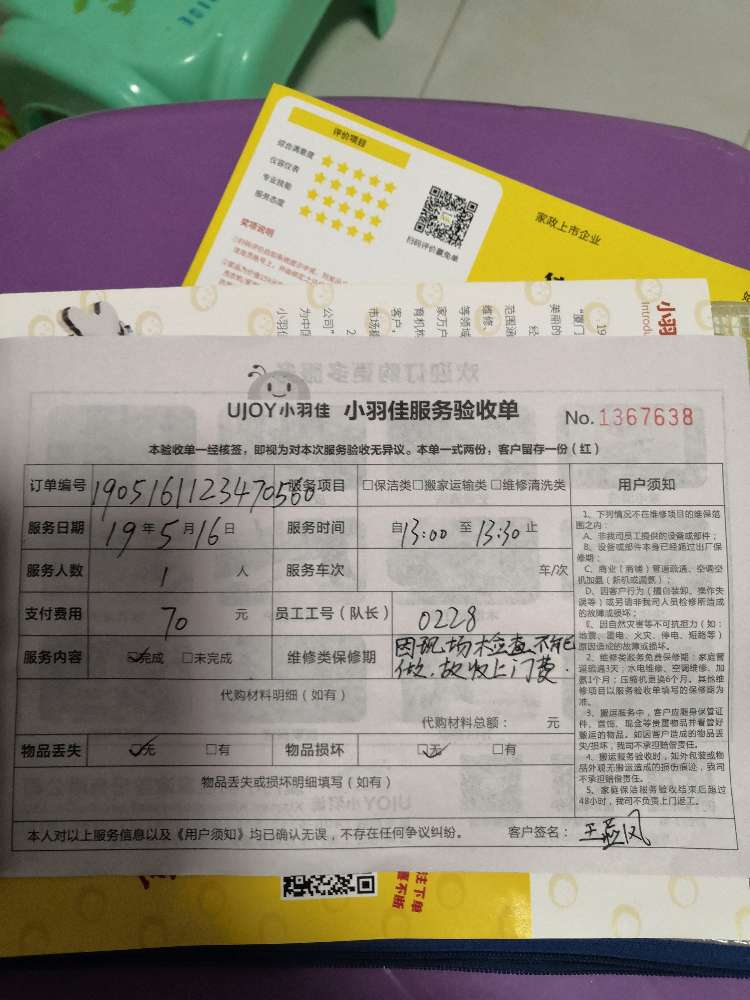 评价项目
综合满意度
仪容仪表
专业技能
服务态度
扫码评价赢免单
家政上市企业
奖项说明
UJOY小羽佳 小羽佳服务验收单 No.1367638
本验收单一经核签，即视为对本次服务验收无异议。本单一式两份，客户留存一份（红）
订单编号 1905161123470560 服务项目 □保洁类□搬家运输类□维修清洗类 用户须知
服务日期 19年5月16日 服务时间 自13:00至13:30止
服务人数 1人 服务车次 车/次
支付费用 70元 员工工号（队长） 0228
服务内容 ☑完成 □未完成 维修类保修期 因现场检查不能
做，故收上门费.
代购材料明细（如有）
代购材料总额： 元
物品丢失 ☑无 □有 物品损坏 ☑无 □有
物品丢失或损坏明细填写（如有）
1、下列情况不在维修项目的维保范
围之内：
A、非我司员工提供的设备或部件；
B、设备或部件本身已经超过出厂保
修期；
C、商业（商铺）管道疏通、空调空
机加氨（新机或漏氨）；
D、因客户行为（擅自装卸、操作失
误等）或另请非我司人员检修所造成
的故障或损坏；
E、因自然灾害等不可抗拒力（如：
地震、雷电、火灾、停电、短路等）
原因造成的故障或损坏。
2、维修类服务免费保修期：家庭管
道疏通3天；水电维修、空调维修、加
氨1个月；压缩机更换6个月。其他维
修项目以服务验收单填写的保修期为
准。
3、搬运服务中，客户应随身保管证
件、首饰、现金等贵重物品并看管好
搬运的物品。如因客户造成的物品丢
失/损坏，我司不承担赔偿责任。
4、搬运服务验收时，如外包装或物
品外观无搬运造成的损伤痕迹，我司
不承担赔偿责任。
5、家庭保洁服务验收结束后超过
48小时，我司不负责上门返工。
本人对以上服务信息以及《用户须知》均已确认无误，不存在任何争议纠纷。 客户签名：
注下单
喜不断